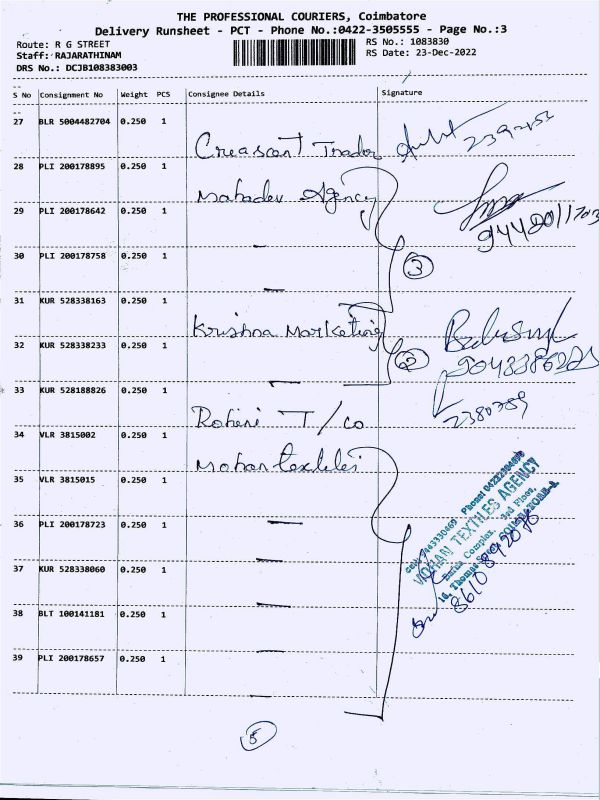 THE PROFESSIONAL COURIERS, Coimbatore
Delivery Runsheet - PCT - Phone No.:0422-3505555 - Page No.:3
Route: R G STREET RS No.: 1083830
Staff: RAJARATHINAM RS Date: 23-Dec-2022
DRS No.: DCJB108383003
S No Consignment No Weight PCS Consignee Details Signature
27 BLR 5004482704 0.250 1
Creascent Trador
28 PLI 200178895 0.250 1
Mahadev Agency
29 PLI 200178642 0.250 1
30 PLI 200178758 0.250 1
3
31 KUR 528338163 0.250 1
Krishna Marketing
32 KUR 528338233 0.250 1
2
33 KUR 528188826 0.250 1
Rohini T/co
2380789
34 VLR 3815002 0.250 1
Mohan textiles
35 VLR 3815015 0.250 1
36 PLI 200178723 0.250 1
37 KUR 528338060 0.250 1
MOHAN TEXTILES AGENCY
38 BLT 100141181 0.250 1
39 PLI 200178657 0.250 1
5